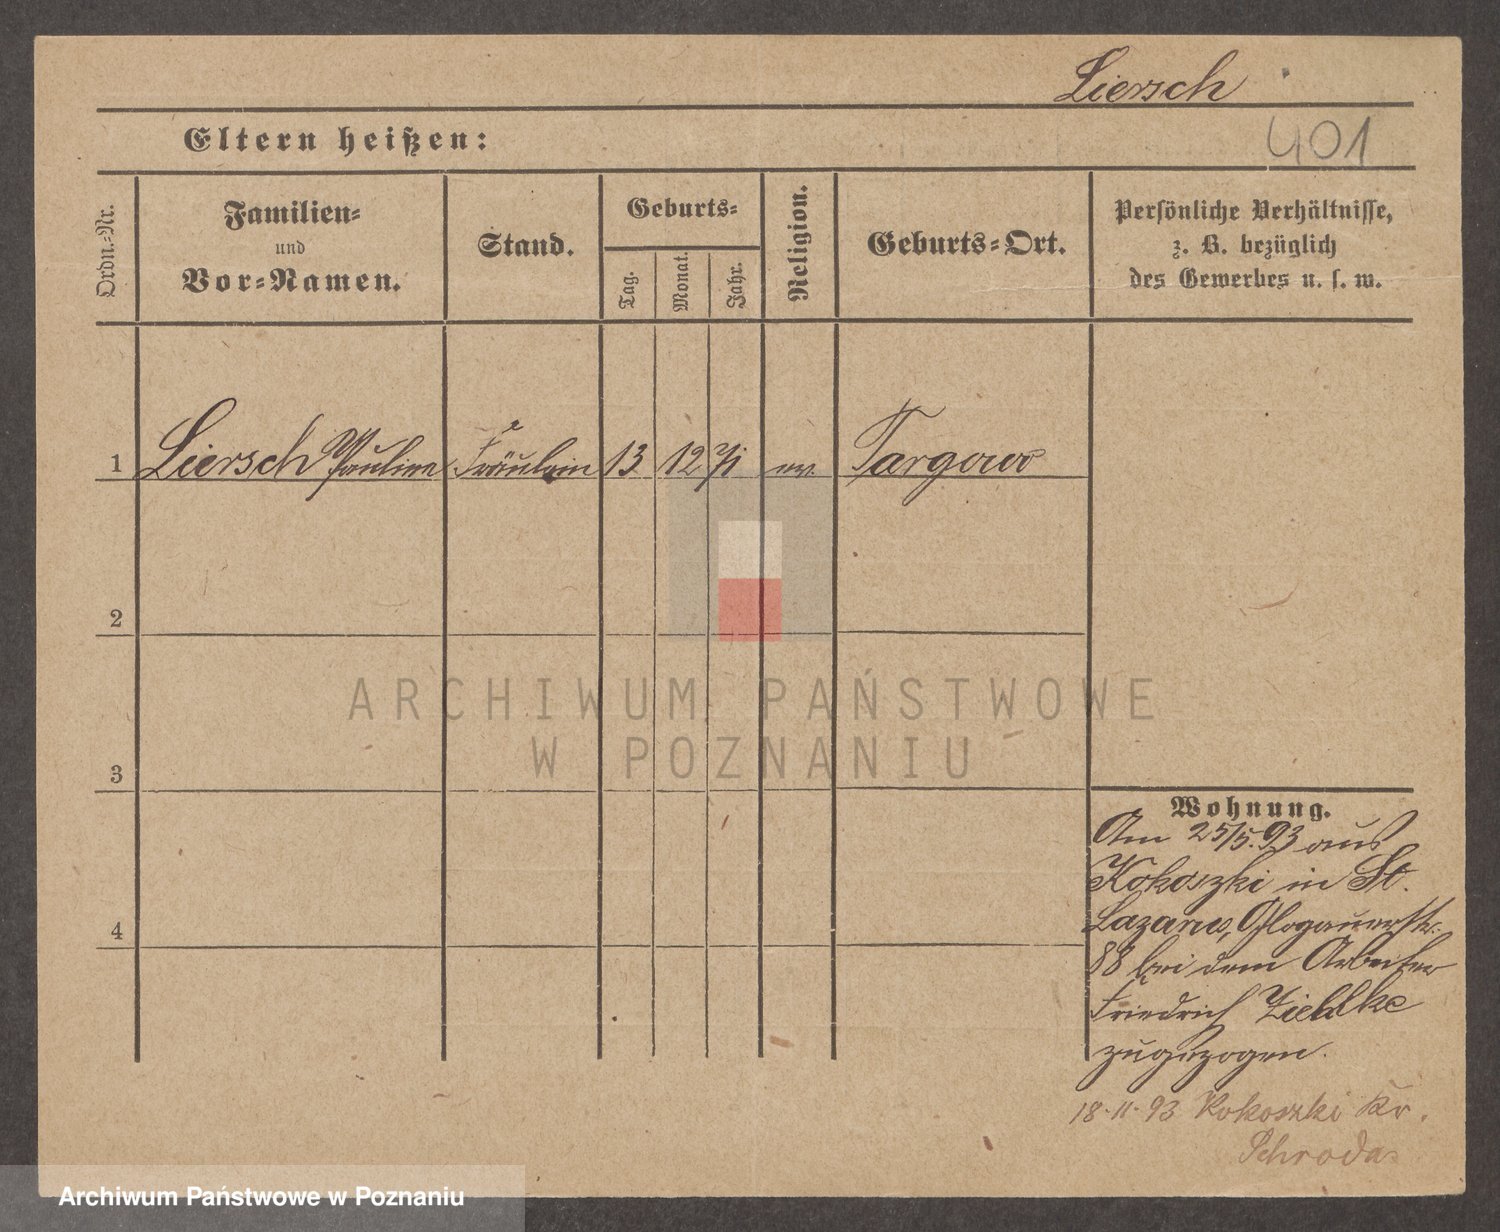 Liersch
401
Eltern heißen:
Ordn.-Nr.
Familien-
und
Vor-Namen.
Stand.
Geburts-
Tag.
Monat.
Jahr.
Religion.
Geburts-Ort.
Persönliche Verhältnisse,
z. B. bezüglich
des Gewerbes u. s. w.
1 Liersch Pauline Fräulein 13 12 71 ev. Targowo
2
3
4
Wohnung.
Am 25/5. 93 aus
Kokoszki in St.
Lazarus, Glogauerstr.
88 bei dem Arbeiter
Friedrich
zugezogen.
18.11.93 Kokoszki Kr.
Schroda
ARCHIWUM PAŃSTWOWE
W POZNANIU
Archiwum Państwowe w Poznaniu